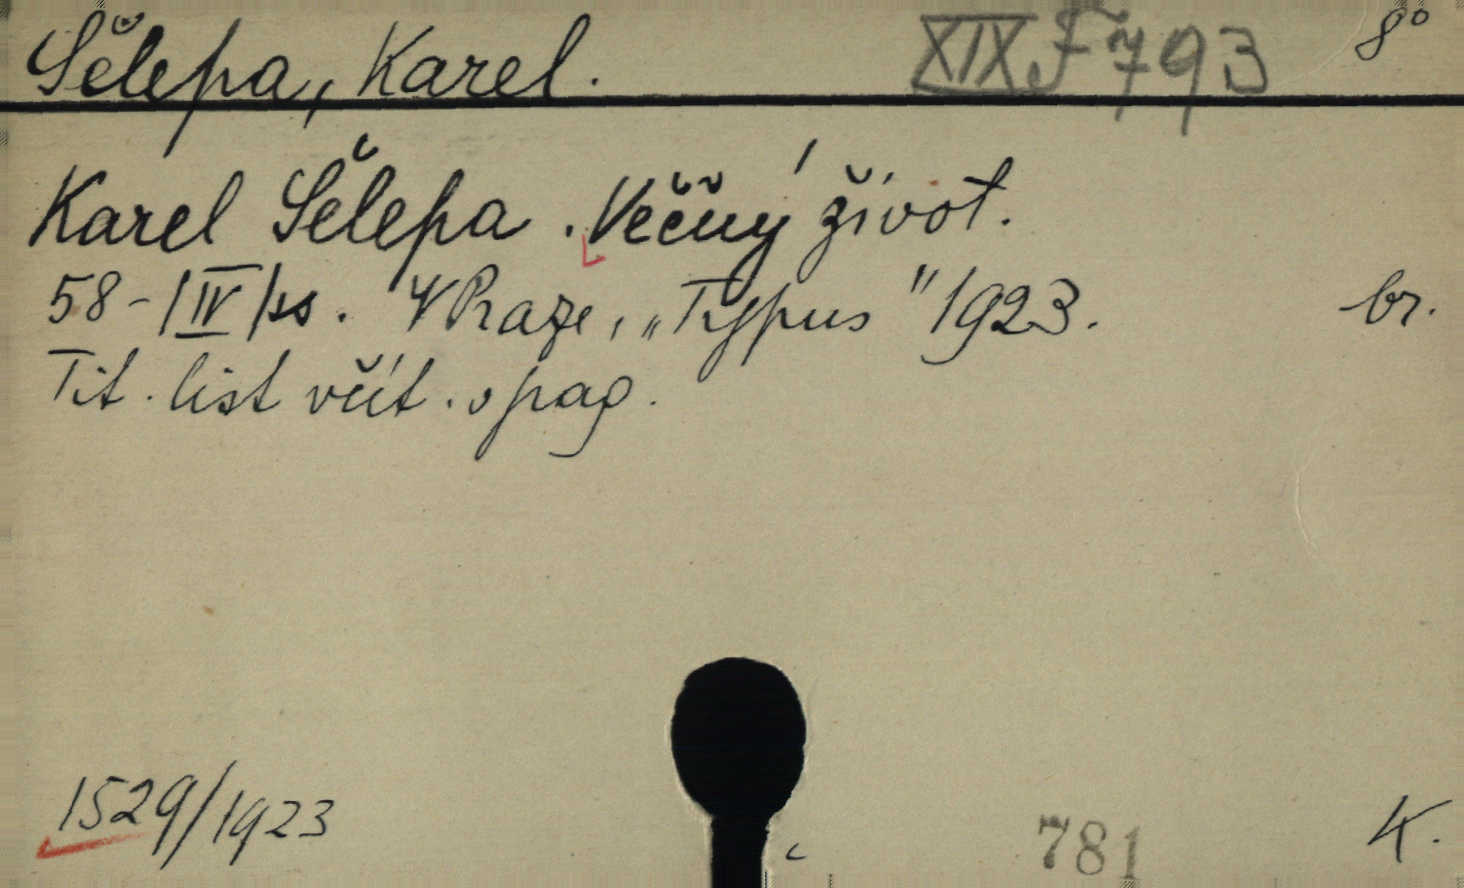 Šělepa, Karel. XIX F 793 8°
Karel Šělepa. Věčný život.
58-/IV/ ss. V Praze, „Typus" 1923. br.
Tit. list včít. v pag.
1529/1923 781 K.